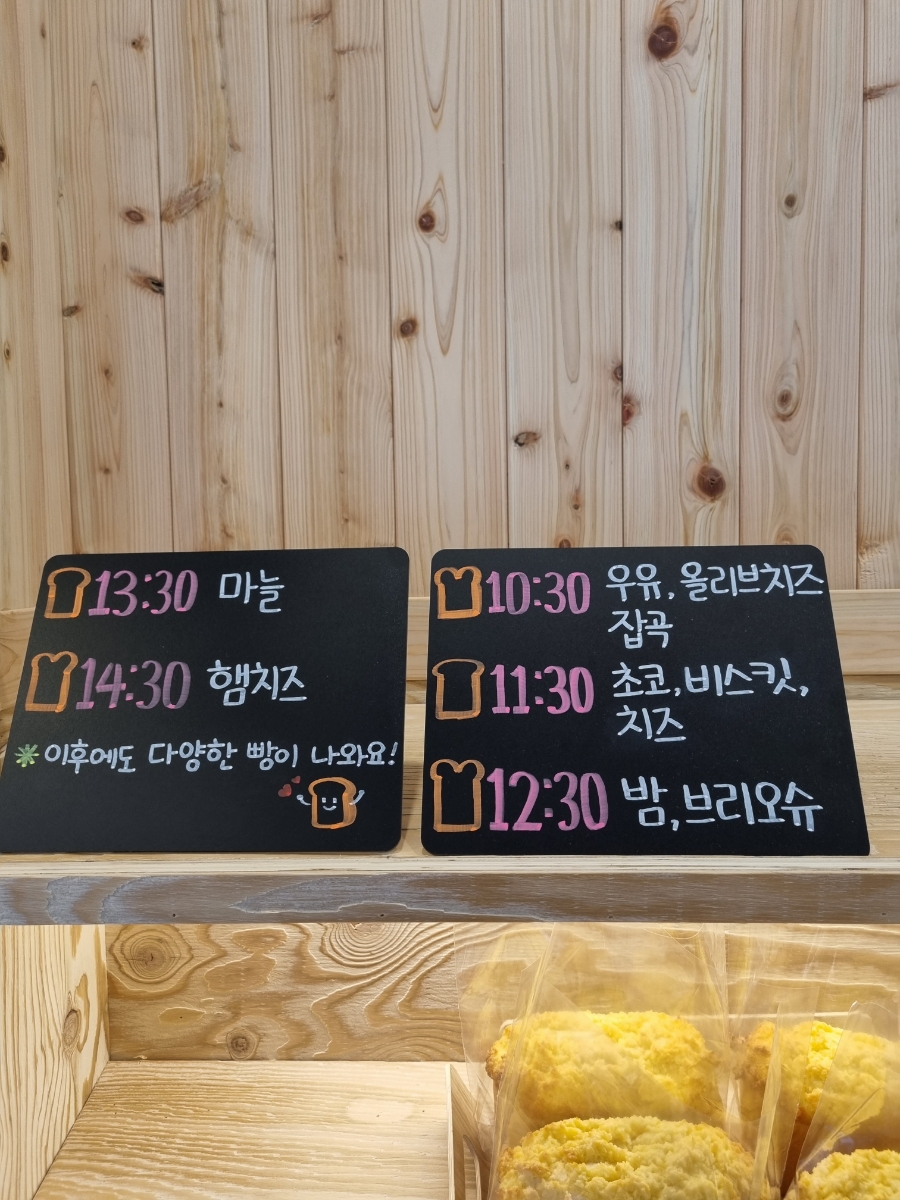 13:30 마늘
14:30 햄치즈
✳이후에도 다양한 빵이 나와요!
10:30 우유, 올리브치즈
잡곡
11:30 초코, 비스킷,
치즈
12:30 밤, 브리오슈